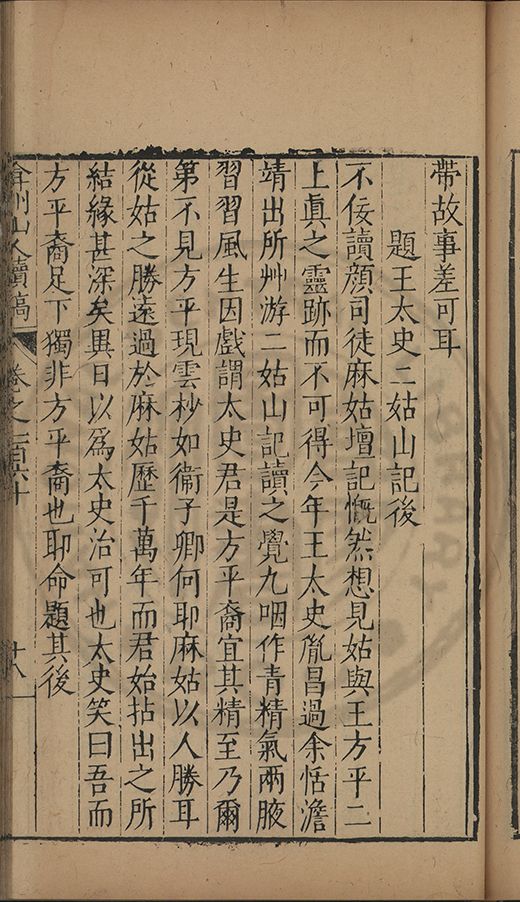 帶故事差可耳
題王太史二姑山記後
不佞讀顏司徒麻姑壇記慨然想見姑與王方平二
上眞之靈跡而不可得今年王太史胤昌過余恬澹
靖出所艸游二姑山記讀之覺九咽作青精氣兩腋
習習風生因戲謂太史君是方平裔宜其精至乃爾
第不見方平現雲杪如衞子卿何耶麻姑以人勝耳
從姑之勝遠過於麻姑歷千萬年而君始拈出之所
結緣甚深矣異日以爲太史治可也太史笑曰吾而
方平裔足下獨非方平裔也耶命題其後
弇州山人續稿 卷之一百六十 十八